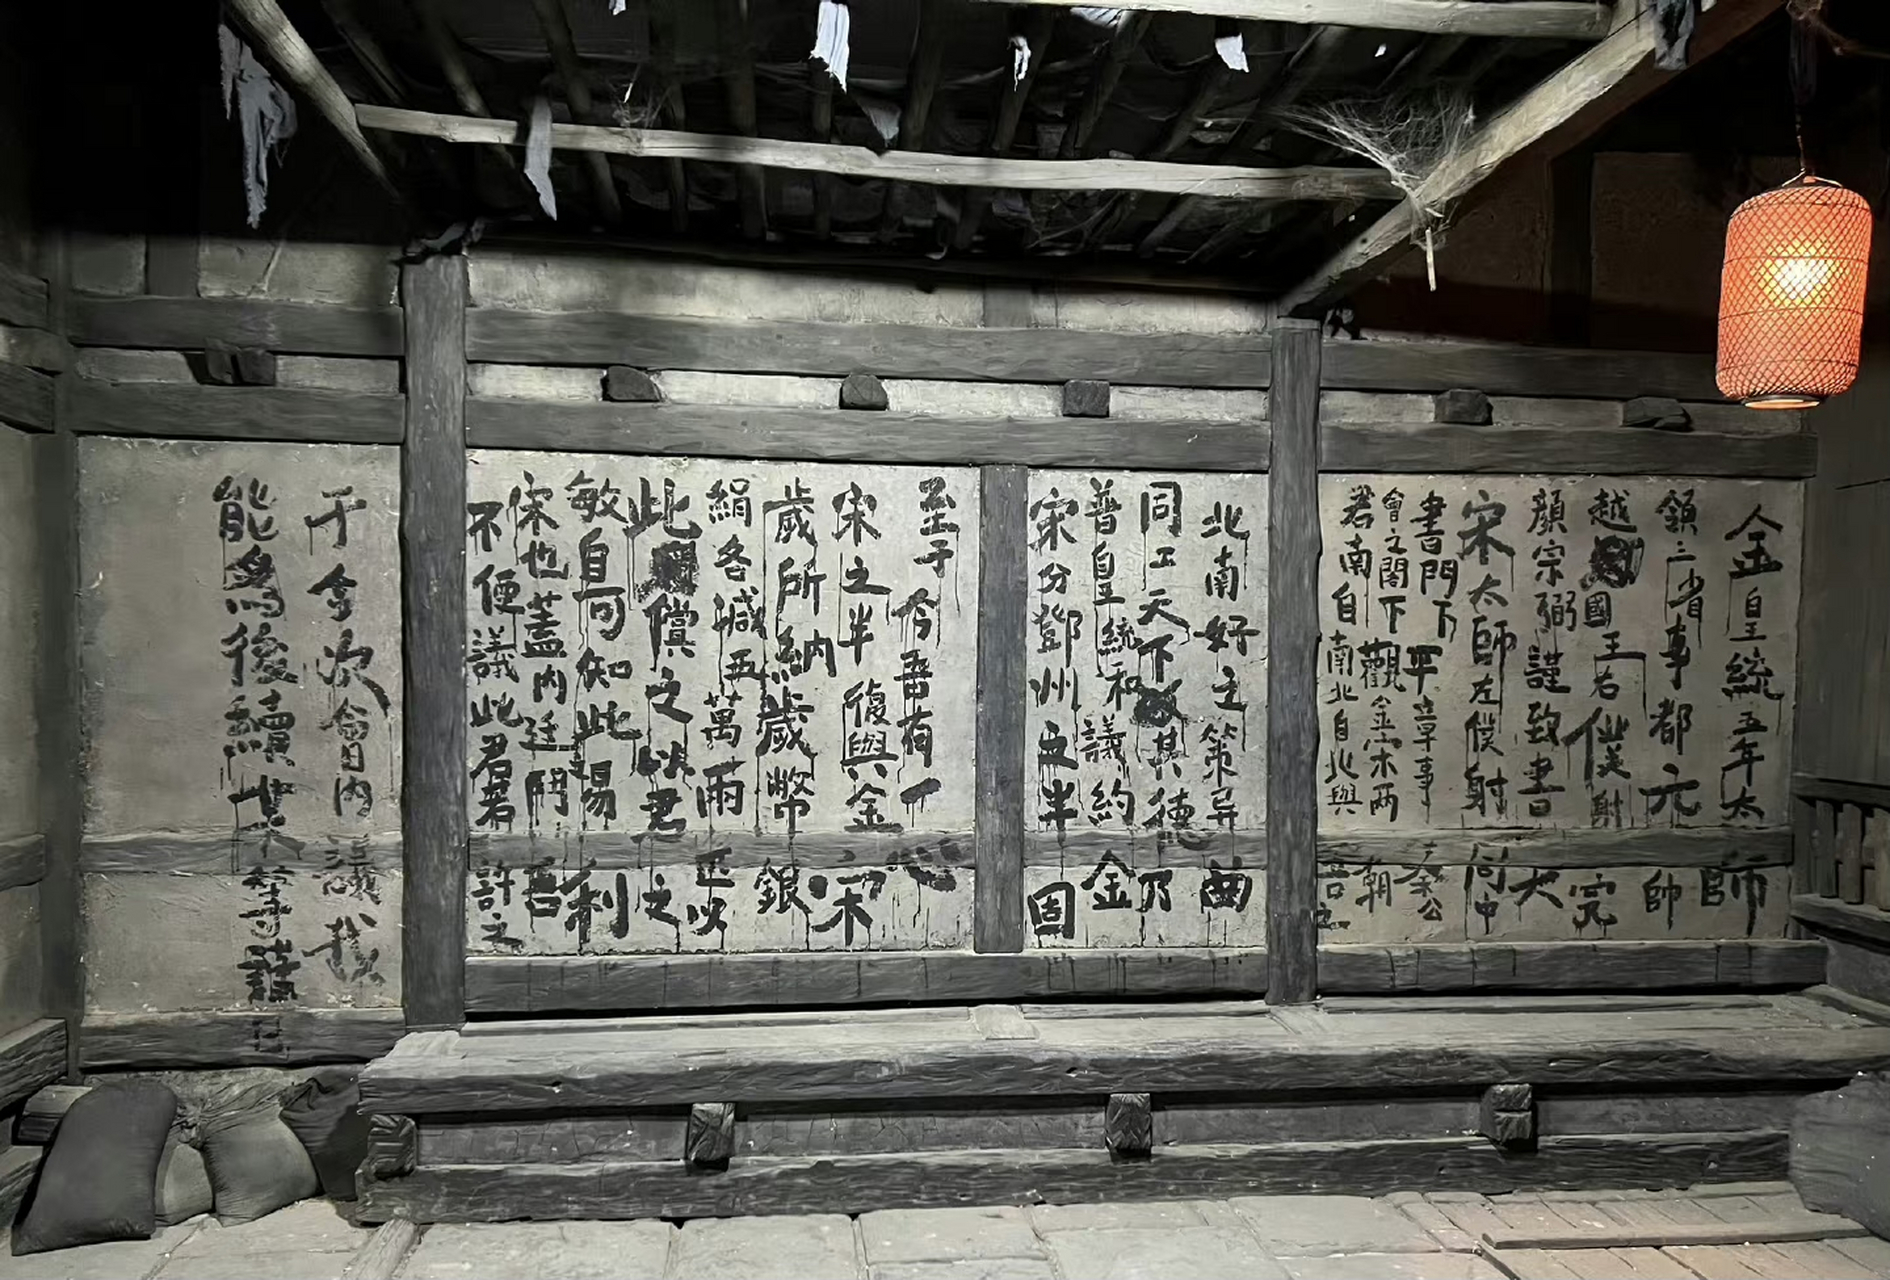 金皇統五年太師
領三省事都元帥
越國王右僕射完
顏宗弼謹致書大
宋太師左僕射同中
書門下平章事秦公
會之閣下觀金宋兩朝
君南自南北自北與吾之
北南好之策异曲
同工天下其德乃
普皇統和議約金
宋分鄧州之半固
至于今吾有一心
宋之半復與金之宋
歲所納歲幣銀
絹各減五萬兩匹以
此償之以君之
敏自可知此易利
宋也蓋內廷鬥吾
不便議此君若許之
于今次會日內議我
能為後續